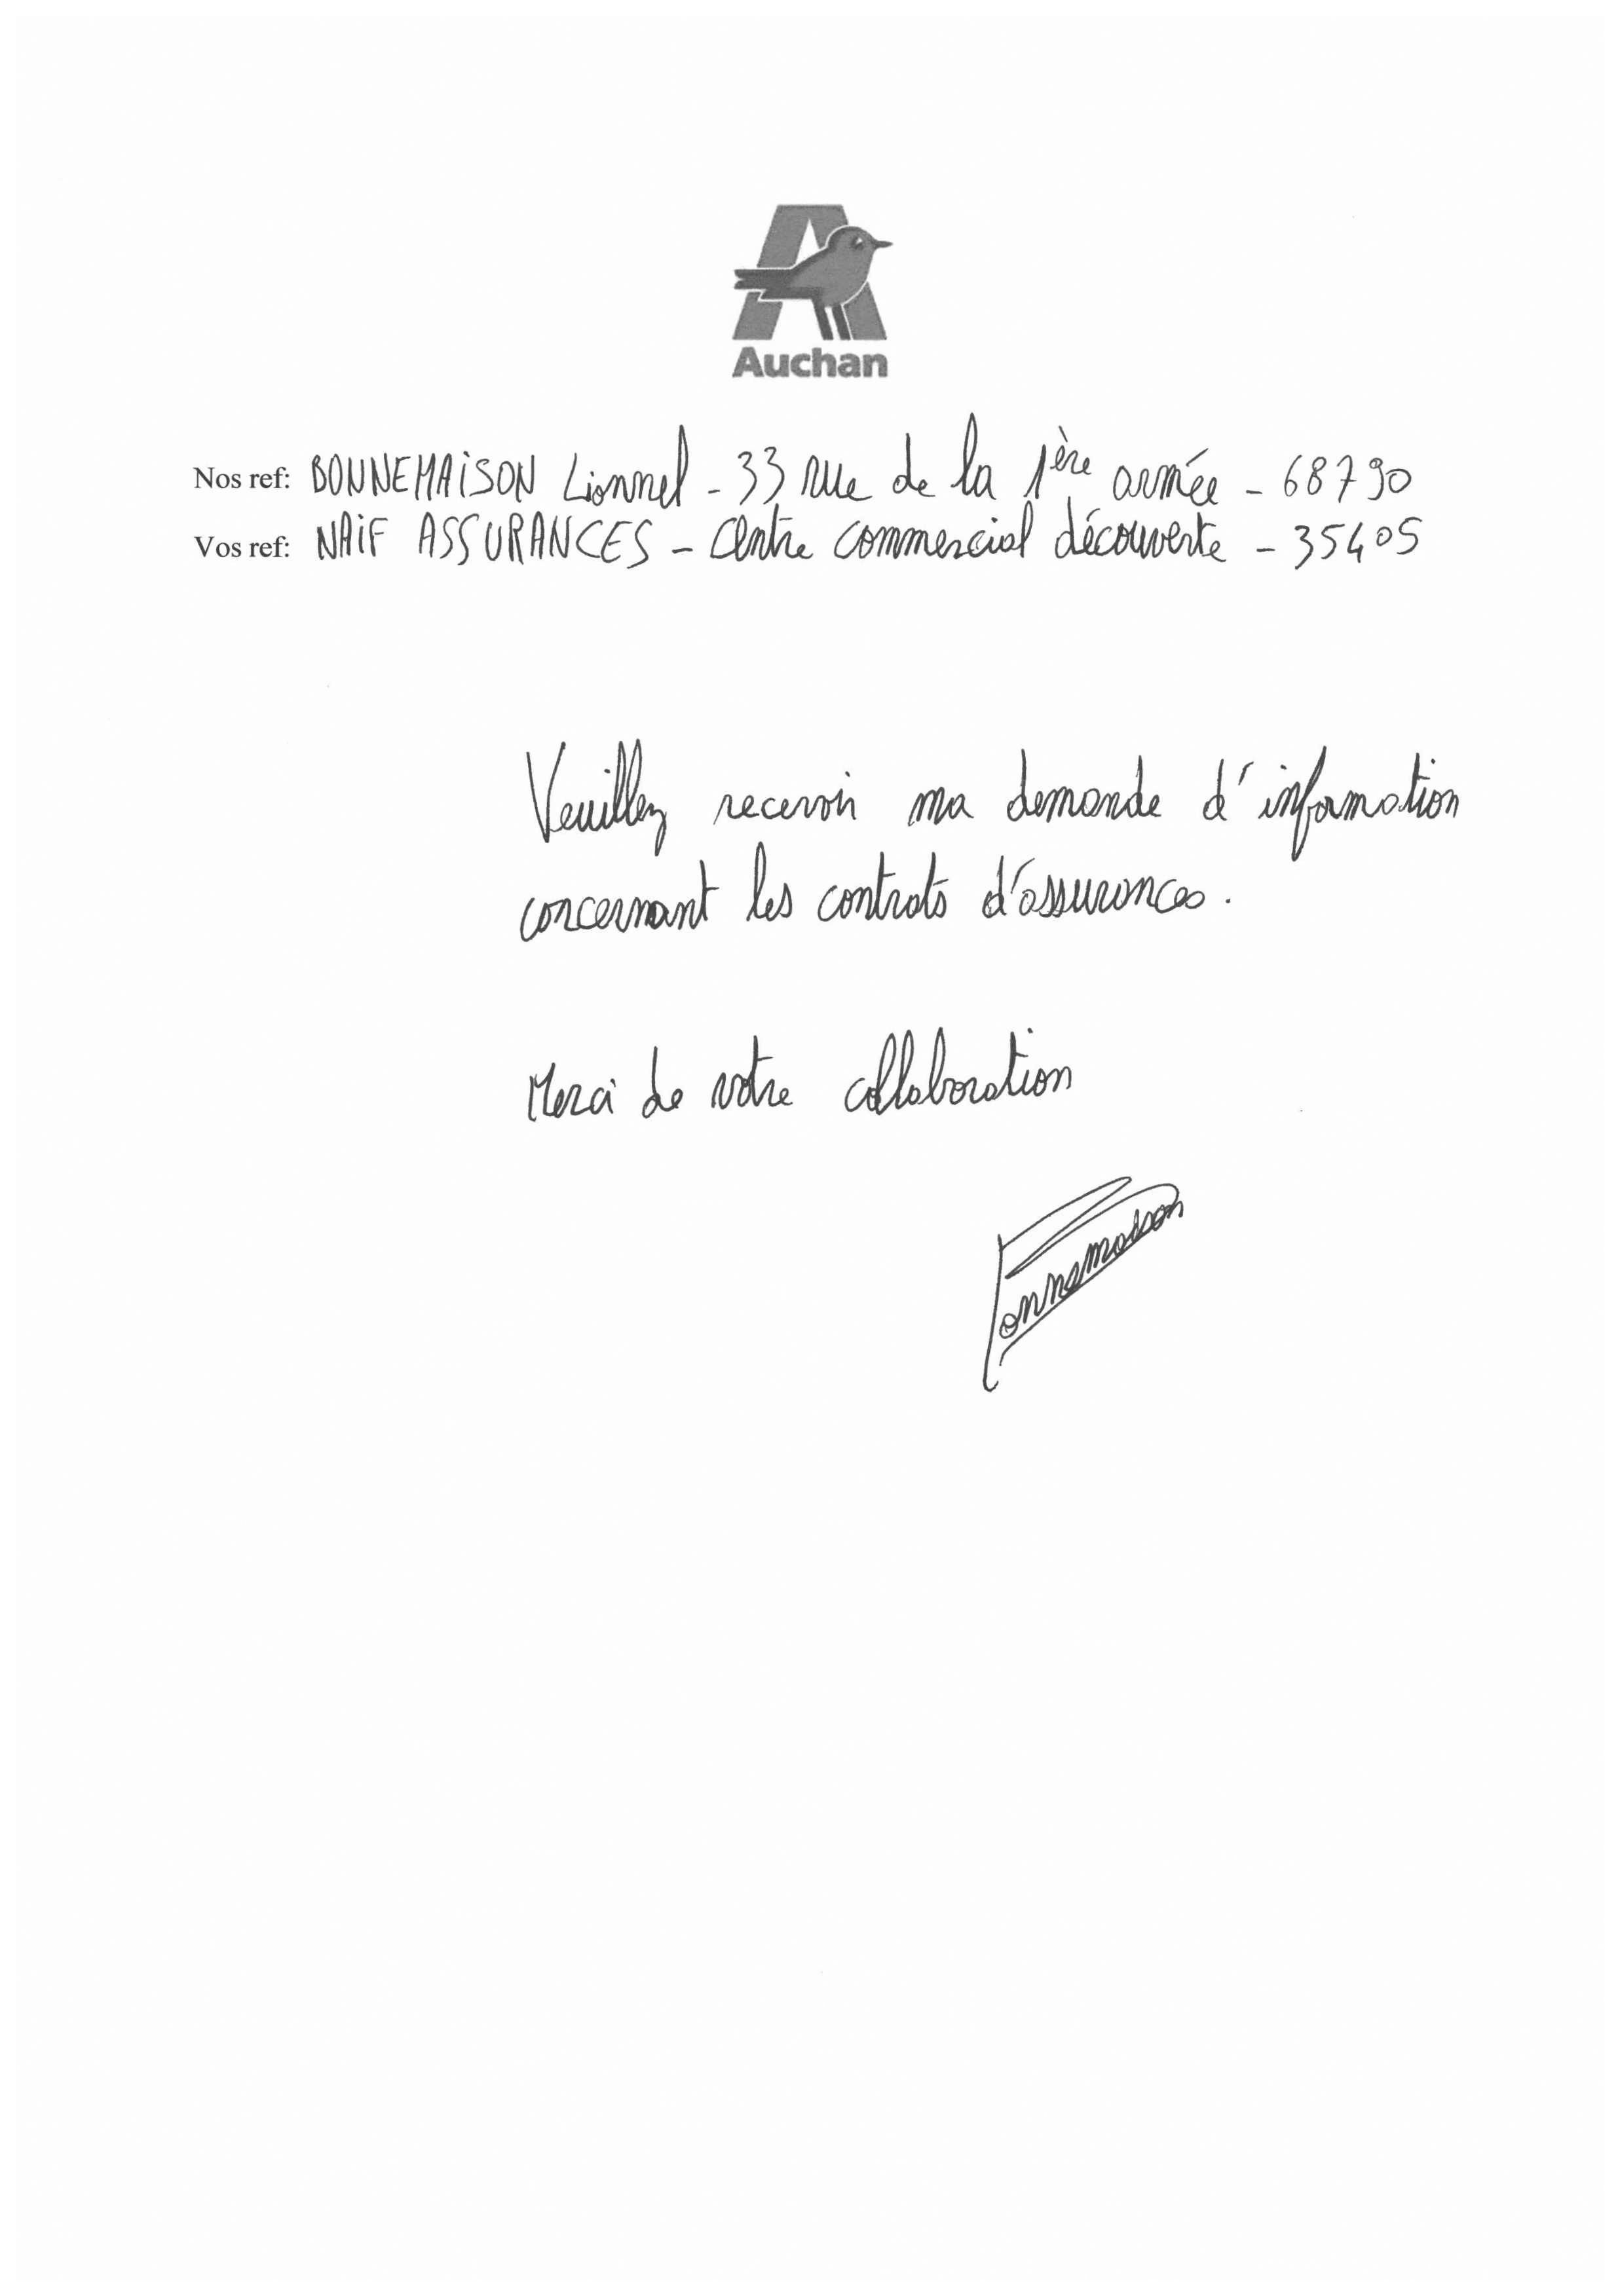 Auchan
Nos ref: BONNEMAISON Lionnel - 33 rue de la 1ère armée - 68790
Vos ref: NAIF ASSURANCES - Centre commercial découverte - 35405
Veuillez recevoir ma demande d'information
concernant les contrats d'assurances.
Merci de votre collaboration
Bonnemaison